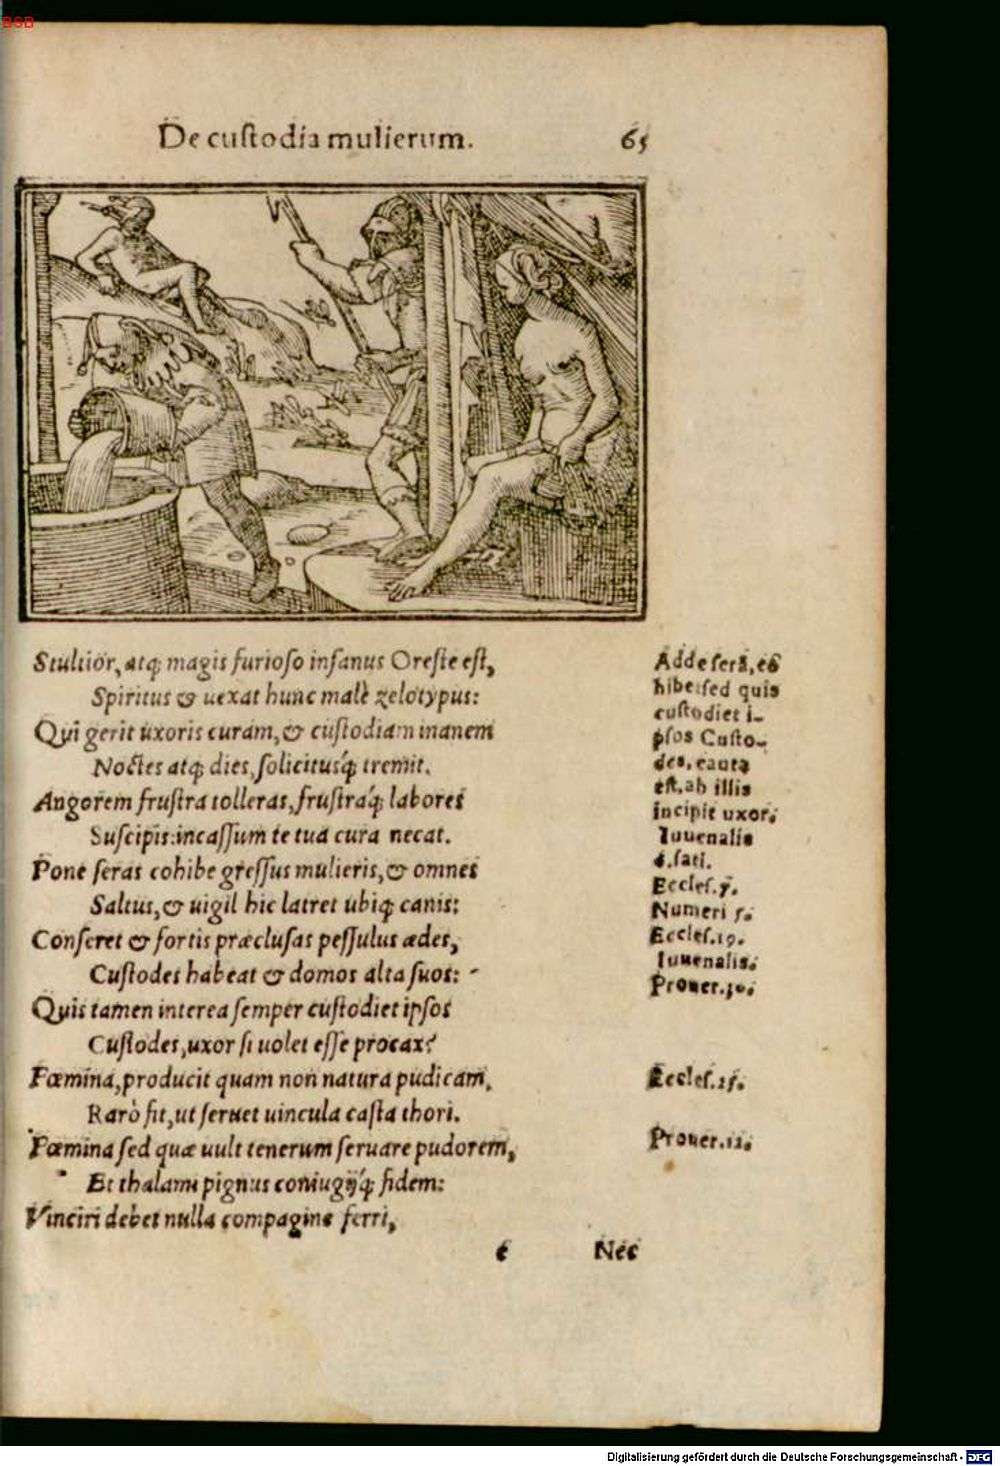 BSB
De custodia mulierum.
65
Stultior, atq; magis furioso insanus Oreste est,
Spiritus & uexat hunc malè zelotypus:
Qui gerit uxoris curam, & custodiam inanem
Noctes atq; dies, solicitusq́; tremit.
Angorem frustra tolleras, frustraq́; labores
Suscipis: incassum te tua cura necat.
Pone seras cohibe gressus mulieris, & omnes
Saltus, & uigil hic latret ubiq; canis:
Conseret & fortis præclusas pessulus ædes,
Custodes habeat & domos alta suos:
Quis tamen interea semper custodiet ipsos
Custodes, uxor si uolet esse procax?
Fœmina, producit quam non natura pudicam,
Rarò fit, ut seruet uincula casta thori.
Fœmina sed quæ uult tenerum seruare pudorem,
Et thalami pignus coniugijq́; fidem:
Vinciri debet nulla compagine ferri,
Adde serã, co
hibe: sed quis
custodiet i-
psos Custo-
des, cauta
est, ab illis
incipit uxor.
Iuuenalis
6. sati.
Eccles. 7.
Numeri 5.
Eccles. 19.
Iuuenalis.
Prouer. 30.
Eccles. 25.
Prouer. 12.
e Nec
Digitalisierung gefördert durch die Deutsche Forschungsgemeinschaft - DFG